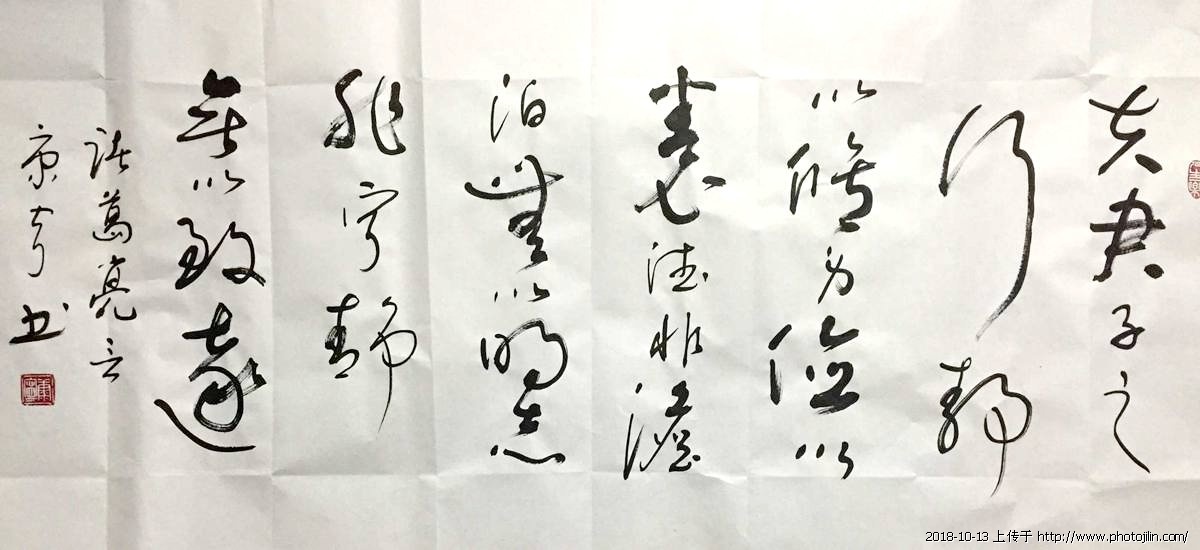 夫君子之
行静
以脩身儉以
養德非澹
泊無以明志
非宁静
無以致遠
諸葛亮言
康宁书
2018-10-13 上传于 http://www.photojilin.com/